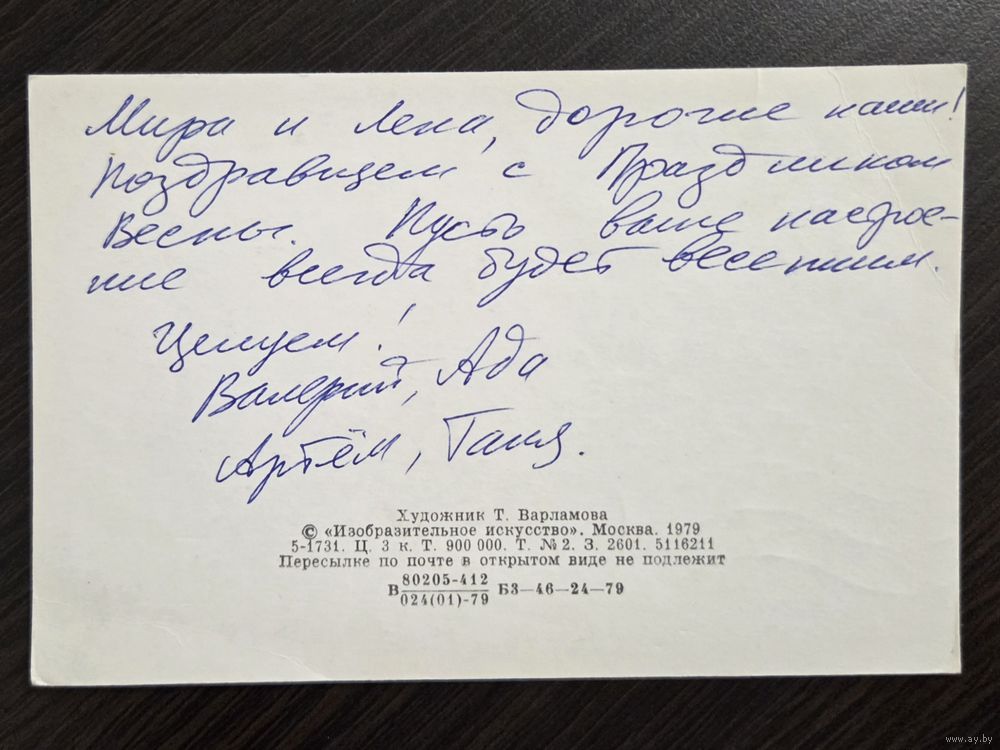 Мира и Лена, дорогие наши!
Поздравляем с Праздником
Весны. Пусть ваше настрое-
ние всегда будет весенним.
Целуем!
Валерий, Ада
Артём, Таня.
Художник Т. Варламова
© «Изобразительное искусство». Москва. 1979
5-1731. Ц. 3 к. Т. 900 000. Т. № 2. З. 2601. 5116211
Пересылке по почте в открытом виде не подлежит
В 80205-412 / 024(01)-79 БЗ—46—24—79
www.ay.by